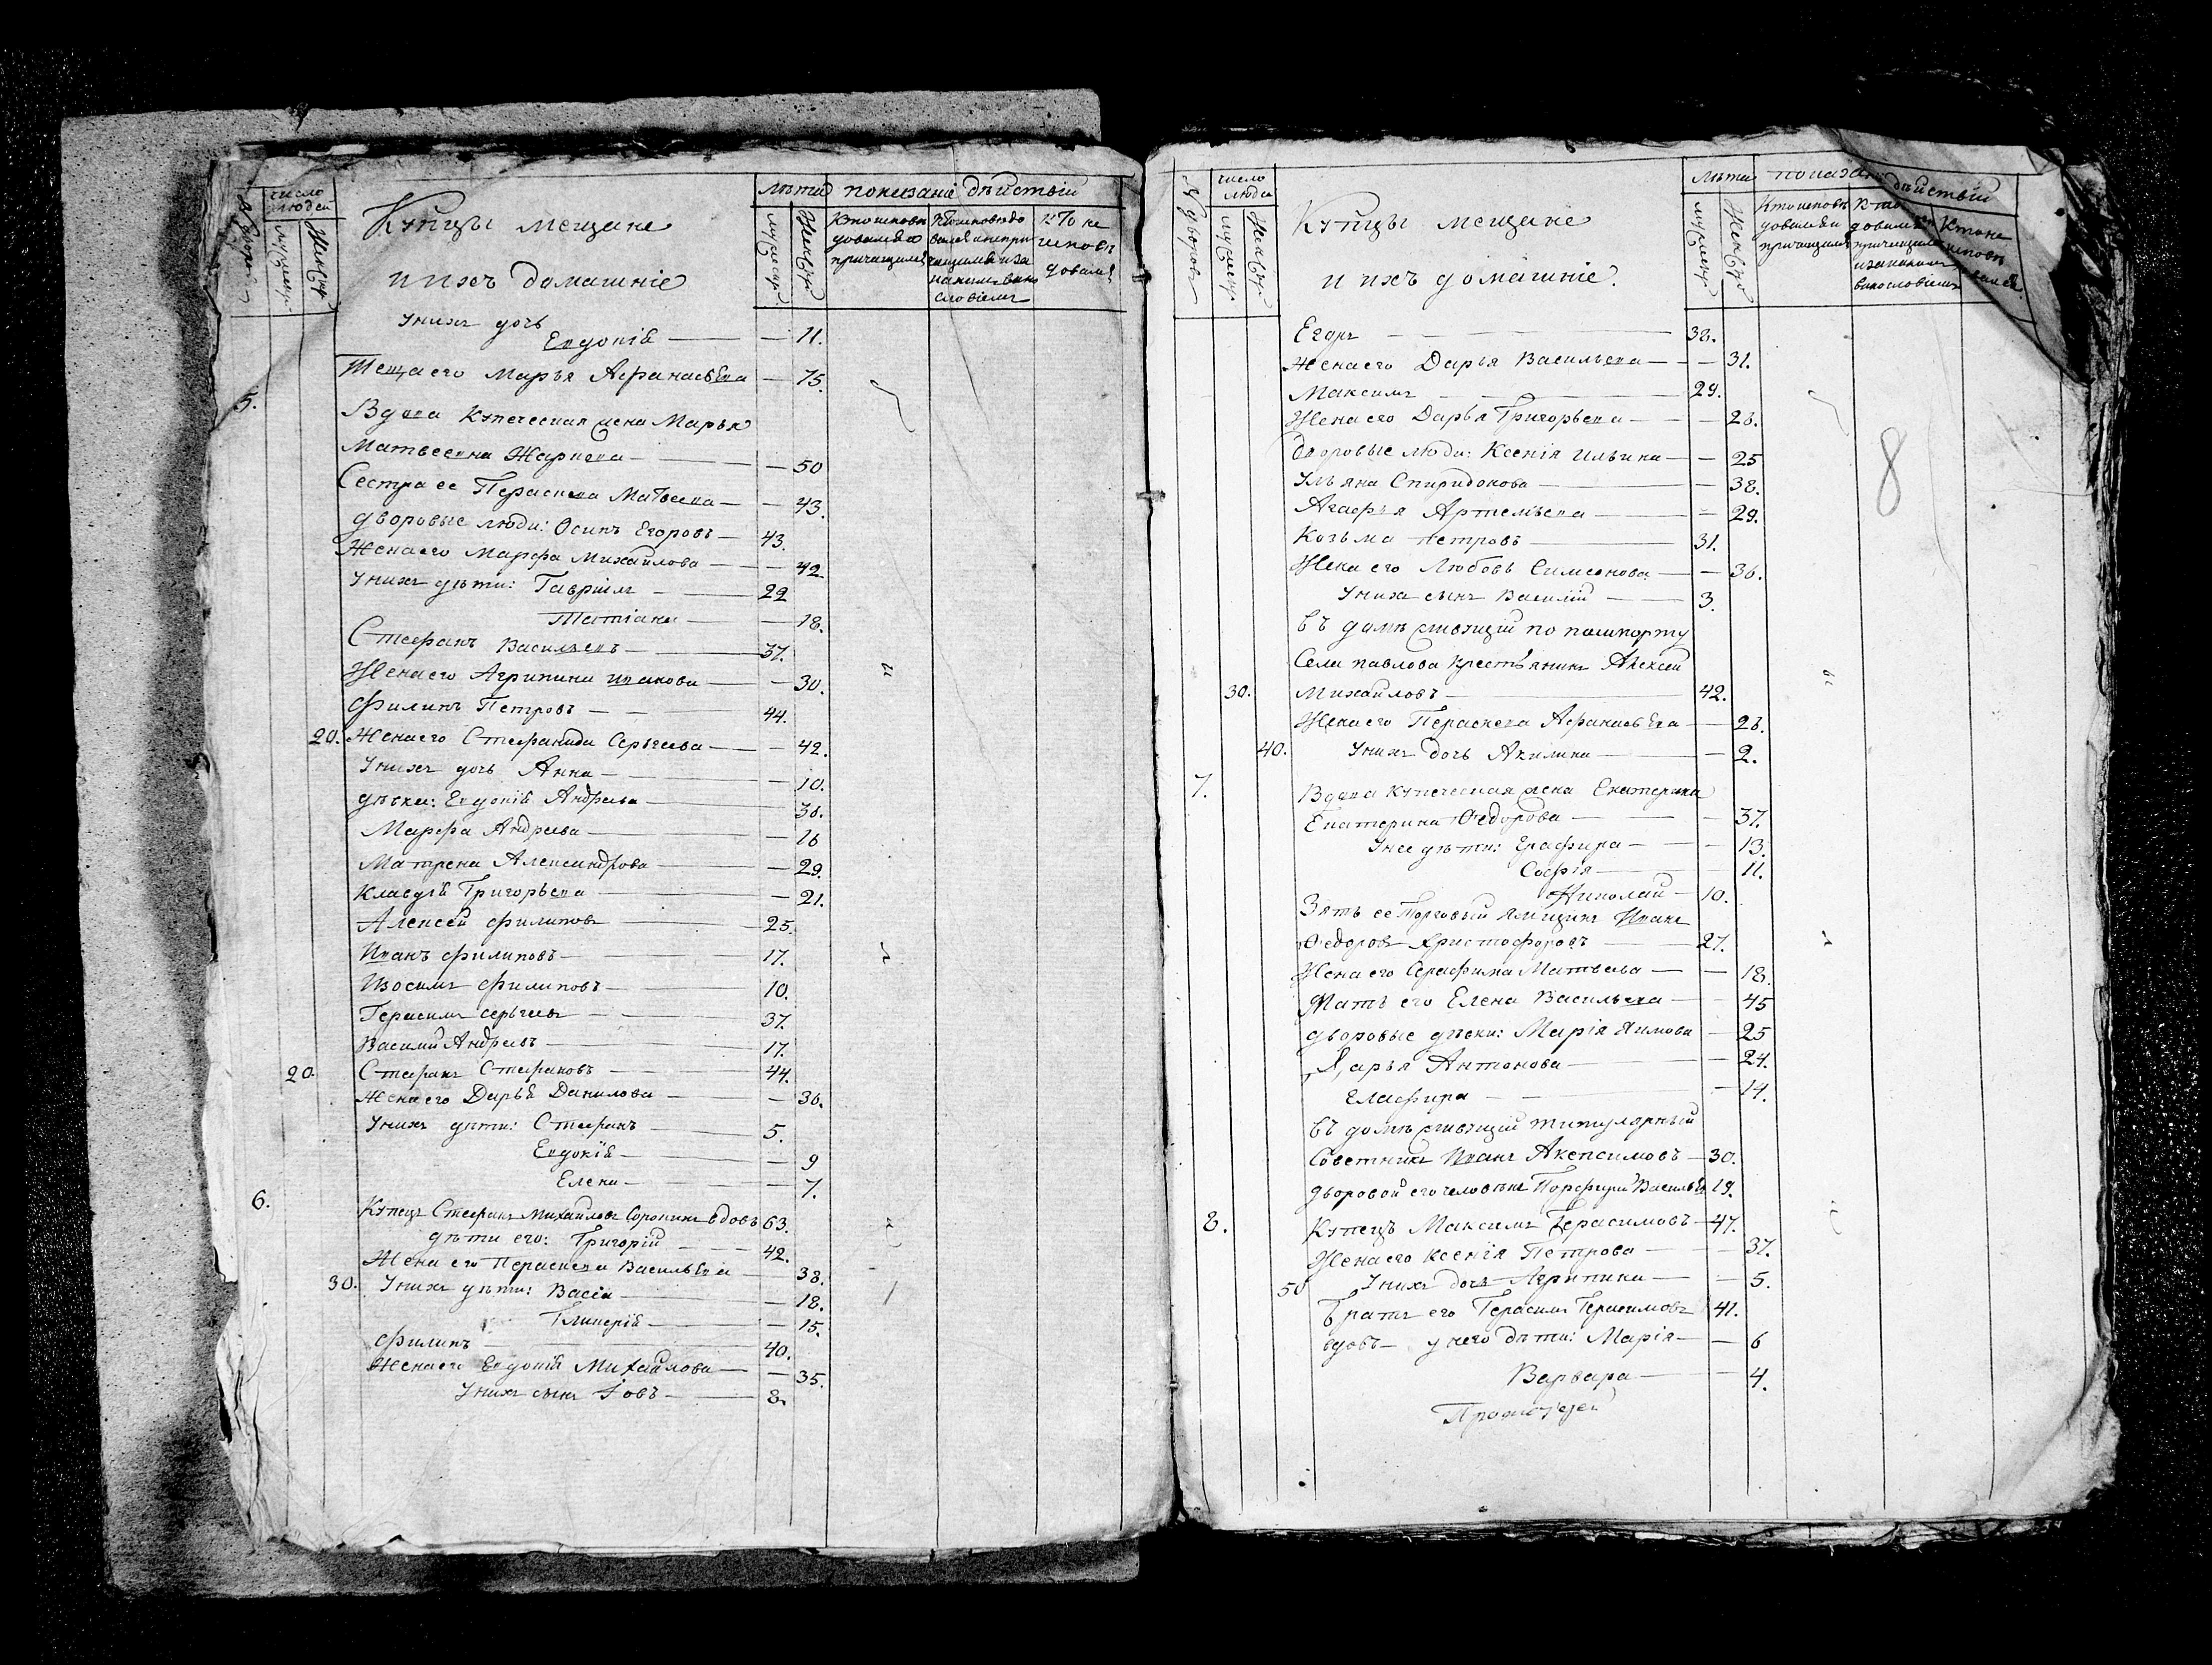 число людей
мужеск.
женск.
Купцы мещане
и ихъ домашніе
лѣта
показаніе дѣйствій
мужеск.
женск.
Кто исповѣдовался и причащался
кто исповѣдовался и не причащался и за какимъ винословіемъ
кто не исповѣдовался
У нихъ дочь
Евдокія — — 11.
Теща его Марья Афанасьева — 75.
5.
Вдова купеческая жена Марья
Матвеевна Жарнева — — 50
Сестра ее Параскева Матвеева — — 43.
дворовые люди: Осипъ Егоровъ — 43.
Жена его Марфа Михаилова — — 42.
У нихъ дѣти: Гавріилъ — 22
Татіана — — 18.
Стефанъ Васильевъ — 37.
Жена его Агрипина Иванова — — 30.
Филипъ Петровъ — — 44.
20. Жена его Стефанида Сергѣева — — 42.
У нихъ дочь Анна — — 10.
дѣвки: Евдокія Андреева — 30.
Марфа Андреева — — 16
Матрена Александрова — — 29.
Клавдія Григорьева — — 21.
Алексей Филиповъ — 25.
Иванъ Филиповъ — 17.
Изосимъ Филиповъ — 10.
Герасимъ Сергѣевъ — — 37.
Василий Андреевъ — 17.
20. Стефанъ Стефановъ — 44.
Жена его Дарья Данилова — — 30.
У нихъ дѣти: Стефанъ — 5.
Евдокія — — 9
Елена — — 7.
6.
Купецъ Стефанъ Михаиловъ Соропинъ вдовъ 63.
дѣти его: Григорій — — 42.
Жена его Параскева Васильева — 38.
30. У нихъ дѣти: Васса — — 18.
Гликерія — — 15.
Филипъ — 40.
Жена его Евдокія Михаилова — — 35.
У нихъ сынъ Іовъ — 8.
№ дворовъ
число людей
мужеск.
женск.
Купцы мещане
и ихъ домашніе.
лѣта
показа дѣйствій
мужеск.
женск.
Кто исповѣдовался и причащался
причащался и за какимъ винословіемъ
Кто не
Егоръ — — 38.
Жена его Дарья Васильева — — 31.
Максимъ — 29.
Жена его Дарья Григорьева — — 28.
8
Дворовые люди: Ксенія Ильина — — 25
Ульяна Спиридонова — — 38.
Агафья Артемьева — — 29.
Козьма Петровъ — 31.
Жена его Любовь Симеонова — — 30.
У нихъ сынъ Василій — 3.
Въ домѣ живущій по пашпорту
Села Павлова крестьянинъ Алексей
30. Михаиловъ — 42.
Жена его Параскева Афанасьева — — 28.
40. У нихъ дочь Акилина — — 2.
7.
Вдова купеческая жена Екатерина
Екатерина Ѳедорова — — 37.
У нее дѣти: Ерафира — — 13.
Софія — — 11.
Николай — 10.
Зять ее торговый ямщикъ Иванъ
Ѳедоровъ Христофоровъ — 27.
Жена его Серафима Матвеева — — 18.
Мать его Елена Васильева — — 45
дворовые дѣвки: Марія Якимова — 25
Дарья Антонова — — 24.
Глафира — — 14.
Въ домѣ живущій титулярный
Советникъ Иванъ Аксенсимовъ — 30.
дворовой его человѣкъ Порфирій Васильевъ 19.
8.
Купецъ Максимъ Герасимовъ — 47.
Жена его Ксенія Петрова — — 37.
50 У нихъ дочь Агрипина — — 5.
Братъ его Герасимъ Герасимовъ 41.
вдовъ — у него дѣти: Марія — — 6
Варвара — — 4.